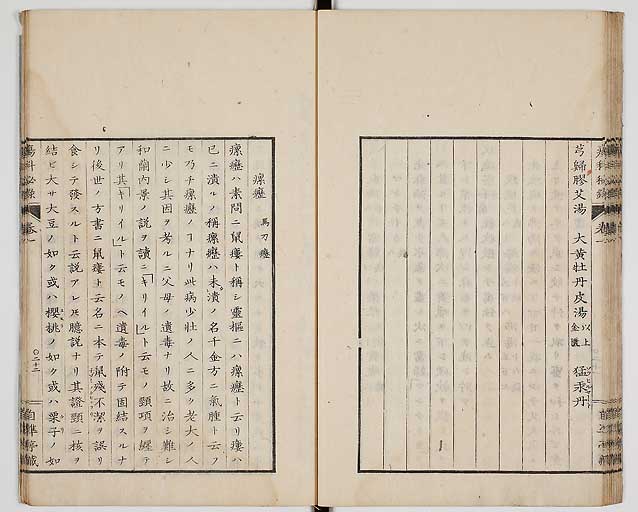 芎歸膠艾湯　大黄牡丹皮湯 以上金匱　猛汞丹
瘰癧　馬刀瘡
瘰癧ハ素問ニ鼠瘻ト稱シ靈樞ニハ瘰癧ト云リ瘻ハ
已ニ潰ルノ稱瘰癧ハ未潰ノ名千金方ニ氣腫ト云フ
モ乃チ瘰癧ノヿナリ此病少壮ノ人ニ多ク老大ノ人
ニ少シ其因ヲ考ルニ父母ノ遺毒ナリ故ニ治シ難シ
和蘭内景ノ説ヲ讀ニキリイルト云モノ頸項ヲ纒テ
アリ其キリイルト云モノヘ遺毒ノ附テ固結スルナ
リ後世ノ方書ニ鼠瘻ト云名ニ本テ鼠殘不潔ヲ誤リ
食シテ發スルト云説アレ𪜈臆説ナリ其證頸ニ核ヲ
結ヒ大サ大豆ノ如ク或ハ櫻桃ノ如ク或ハ栗子ノ如
瘍科秘録
巻一
〇二十二